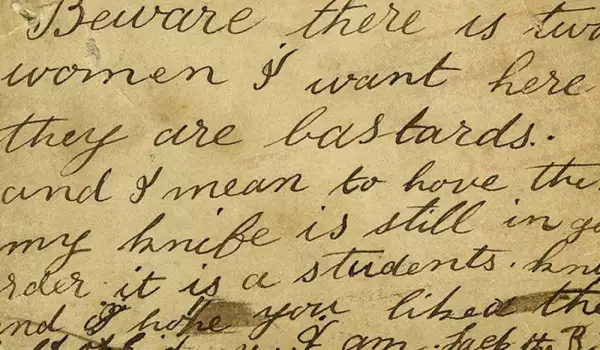 Beware there is two
women I want here
they are bastards.
and I mean to have the
my knife is still in go
rder it is a students. kni
and I hope you liked the
I am Jack the R